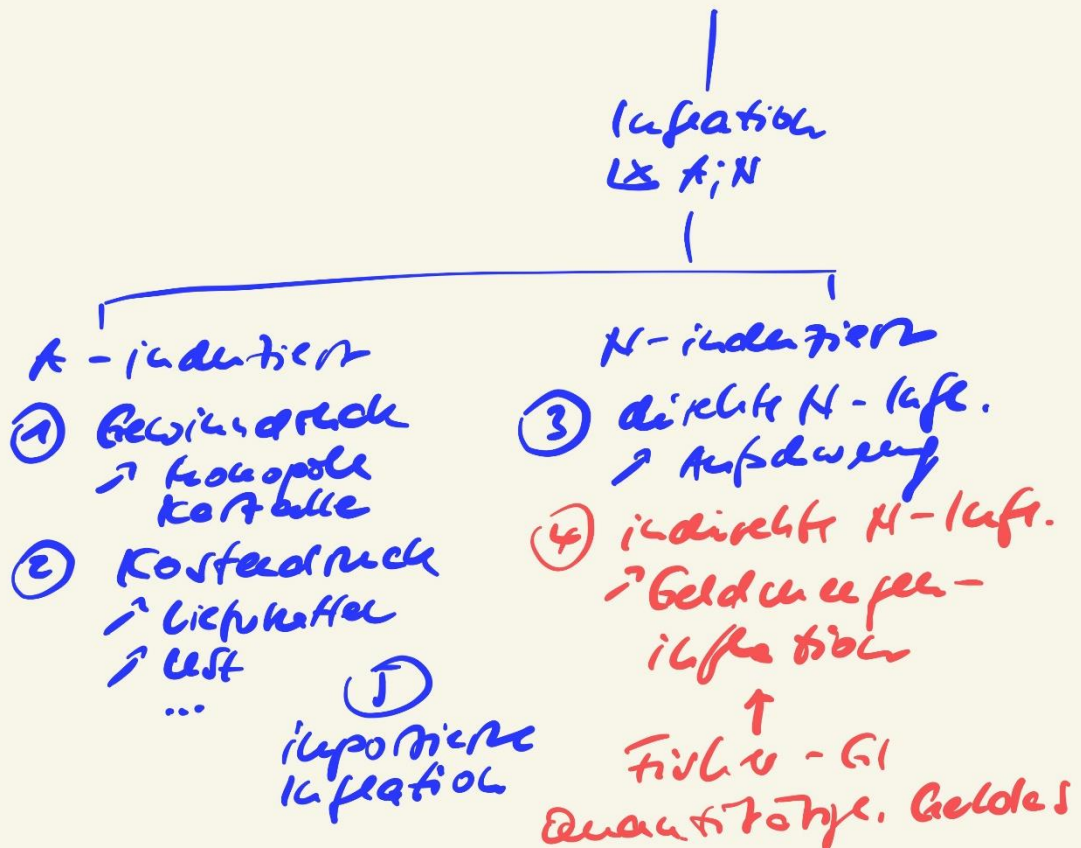 Inflation
A; N
A - indenziert
① Gewinndruck
↗ Monopole
Kartelle
② Kostendruck
↗ Liefketten
↗ USt
...
⑤
importierte
Inflation
N - indenziert
③ direkte N - Infl.
↗ Aufschwung
④ indirekte N - Infl.
↗ Geldmengen-
inflation
↑
Fisher - Gl
Quantitätsgl. Geldes